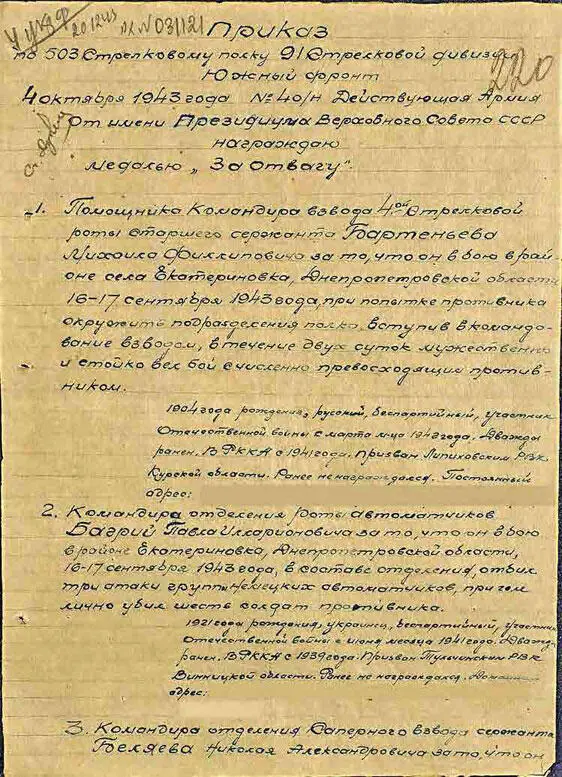 20.12.43
вх N 031121
Приказ
220
по 503 Стрелковому полку 91 Стрелковой дивизии
Южный фронт
4 октября 1943 года № 40/н Действующая Армия
От имени Президиума Верховного Совета СССР
награждаю
медалью „За Отвагу".
1. Помощника Командира взвода 4-ой Стрелковой
роты Старшего сержанта Бартеньева
Михаила Филлиповича за то, что он в бою в рай
оне села Екатериновка, Днепропетровской области
16-17 сентября 1943 года, при попытке противника
окружить подразделения полка, вступив в командо-
вание взводом, в течение двух суток мужественно
и стойко вел бой с численно превосходящим против-
ником.
1904 года рождения, русский, беспартийный, участник
Отечественной войны с марта м-ца 1943 года. Дважды
ранен. В РККА с 1941 года. Призван РВК
Курской области. Ранее не награждался. Постоянный
адрес:
2. Командира отделения роты автоматчиков
Багрий Павла Илларионовича за то, что он в бою
в районе Екатериновка, Днепропетровской области,
16-17 сентября 1943 года, в составе отделения, отбил
три атаки групп немецких автоматчиков, при чем
лично убил шесть солдат противника.
1921 года рождения, украинец, беспартийный, участник
Отечественной войны с июня месяца 1941 года. Дважд.
ранен. В РККА с 1939 года. Призван Тульчинским РВК
Винницкой области. Ранее не награждался. Домашний
адрес:
3. Командира отделения Саперного взвода сержанта
Беляева Николая Александровича за то, что он